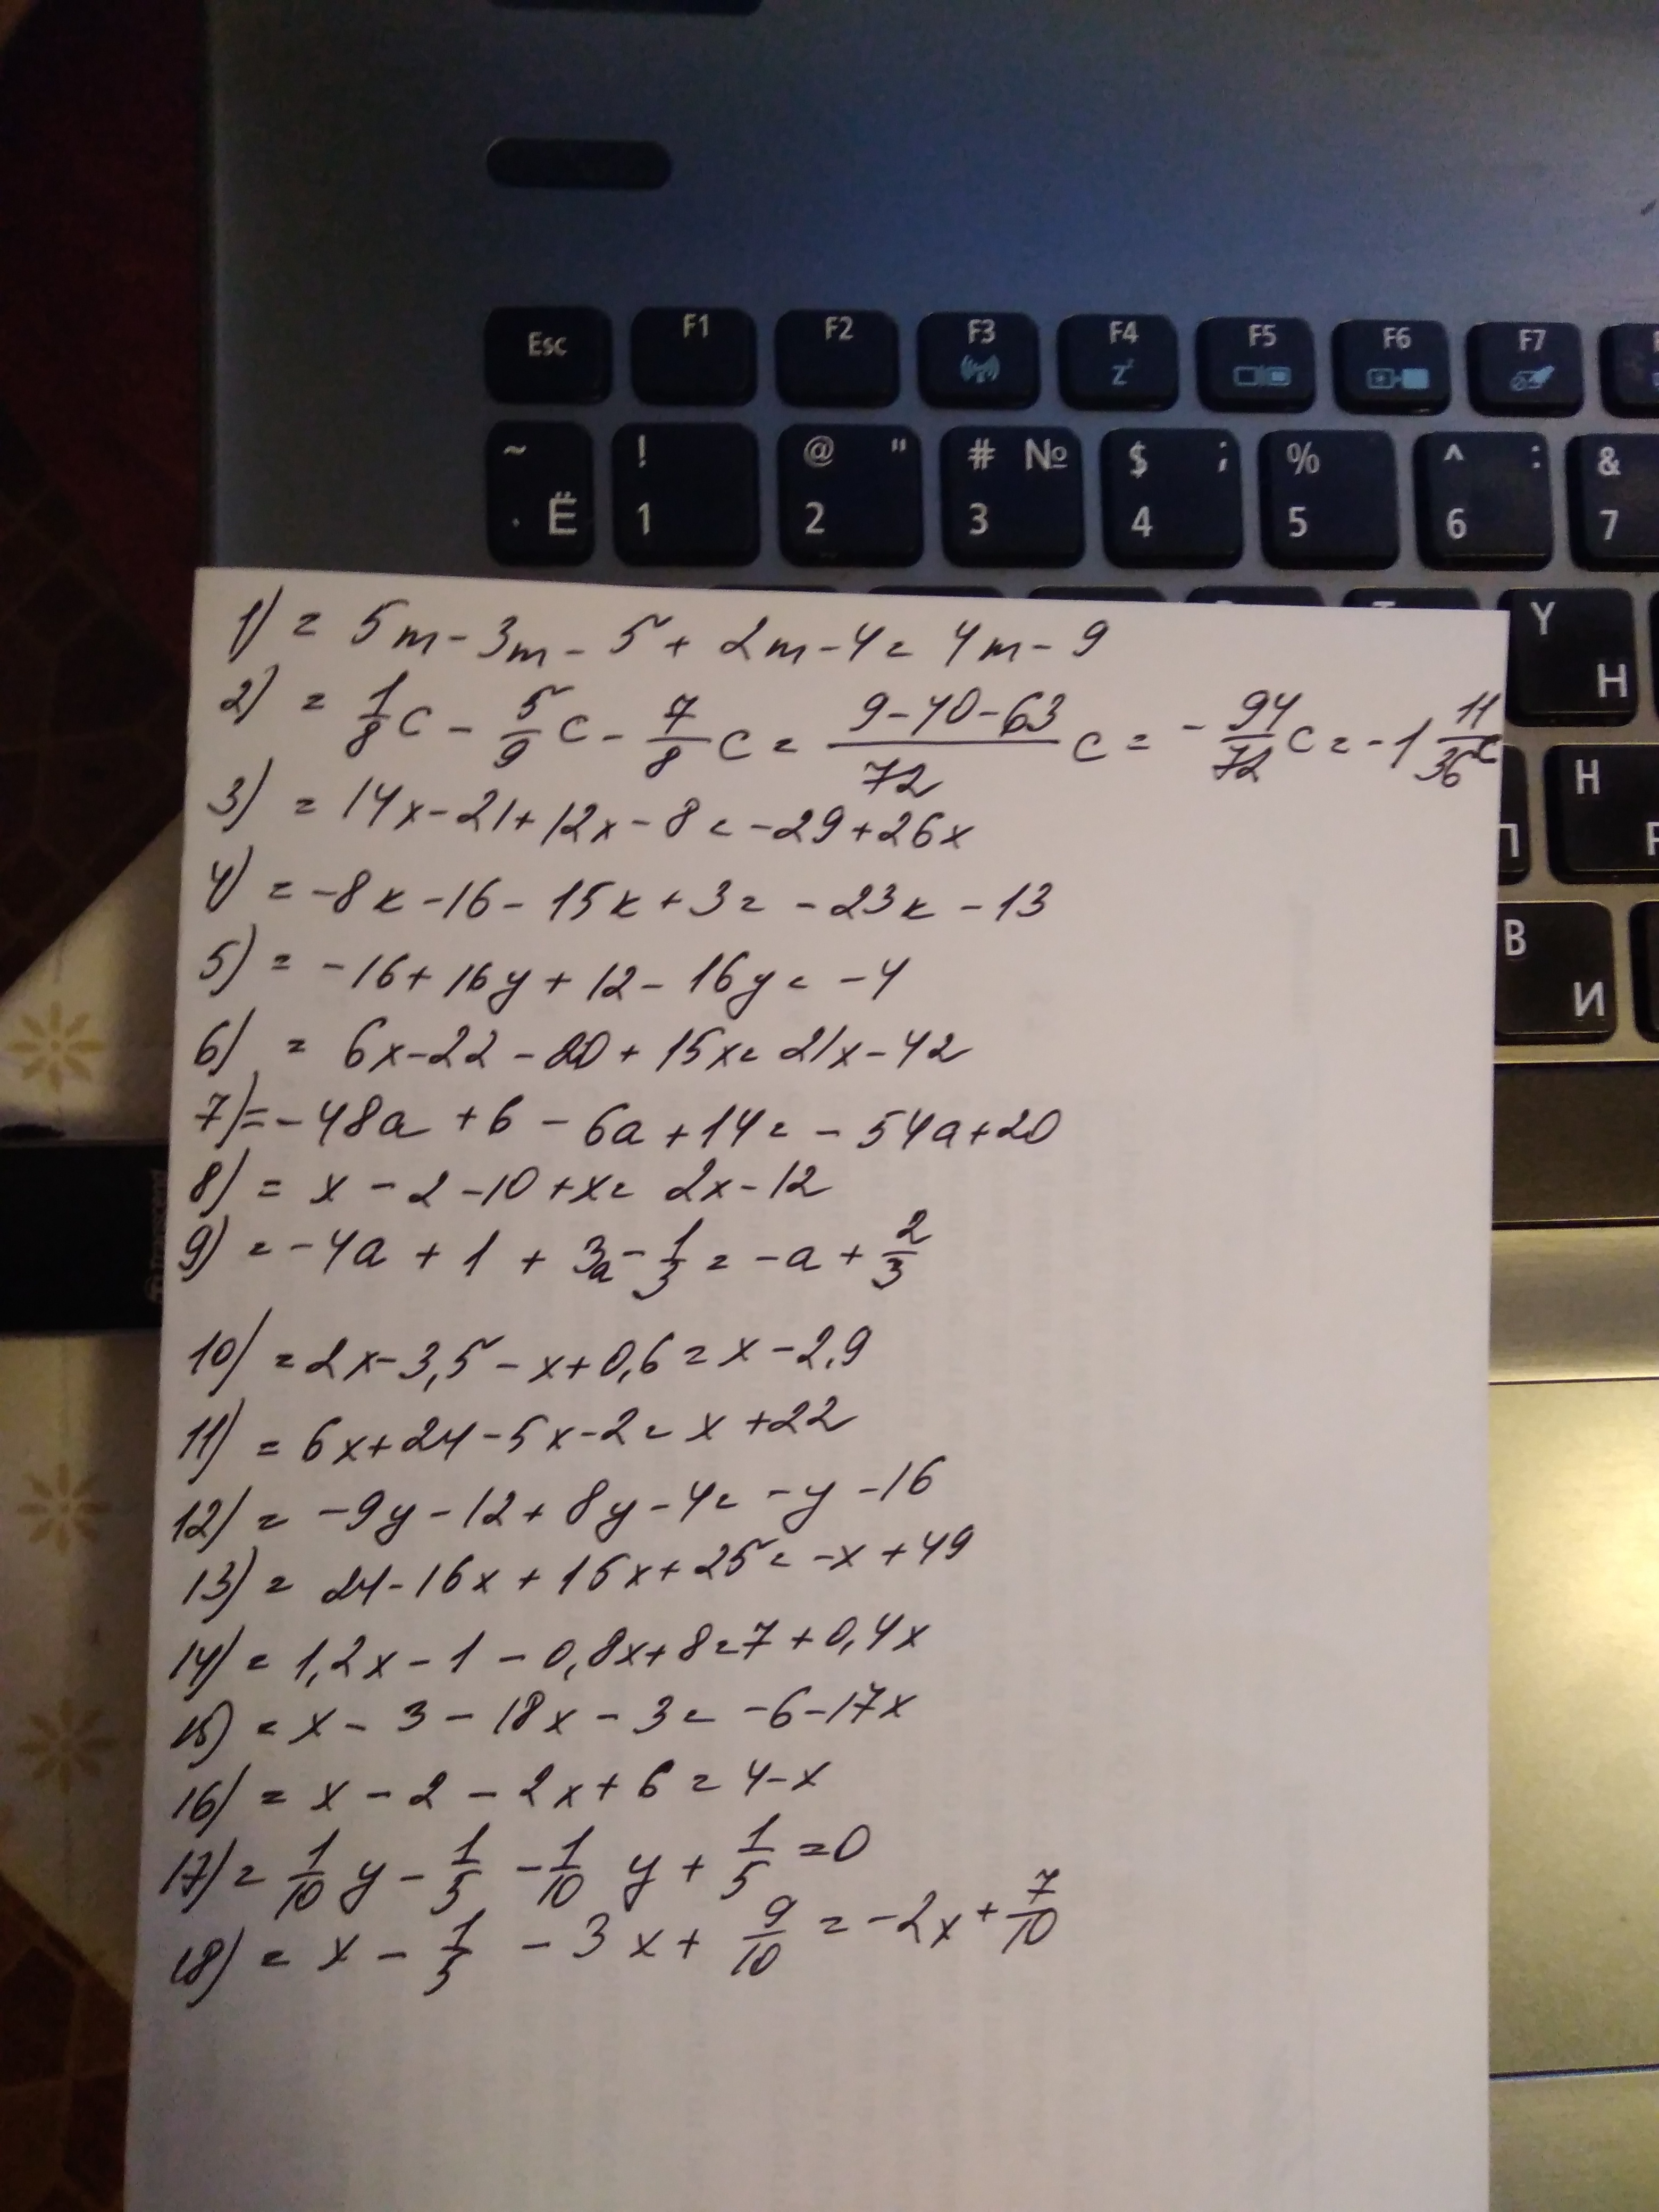 Esc F1 F2 F3 F4 Zz F5 F6 F7
~ Ё ! 1 @ " 2 # № 3 $ ; 4 % 5 ^ : 6 & 7
Y Н
H
П
B И
1) = 5m - 3m - 5 + 2m - 4 = 4m - 9
2) = 1/8 c - 5/9 c - 7/8 c = (9-40-63)/72 c = - 94/72 c = -1 11/36 c
3) = 14x - 21 + 12x - 8 = -29 + 26x
4) = -8к - 16 - 15к + 3 = -23к - 13
5) = -16 + 16y + 12 - 16y = -4
6) = 6x - 22 - 20 + 15x = 21x - 42
7) = -48a + 6 - 6a + 14 = -54a + 20
8) = x - 2 - 10 + x = 2x - 12
9) = -4a + 1 + 3a - 1/3 = -a + 2/3
10) = 2x - 3,5 - x + 0,6 = x - 2,9
11) = 6x + 24 - 5x - 2 = x + 22
12) = -9y - 12 + 8y - 4 = -y - 16
13) = 24 - 16x + 15x + 25 = -x + 49
14) = 1,2x - 1 - 0,8x + 8 = 7 + 0,4x
15) = x - 3 - 18x - 3 = -6 - 17x
16) = x - 2 - 2x + 6 = 4 - x
17) = 1/10 y - 1/5 - 1/10 y + 1/5 = 0
18) = x - 1/5 - 3x + 9/10 = -2x + 7/10
Transcend